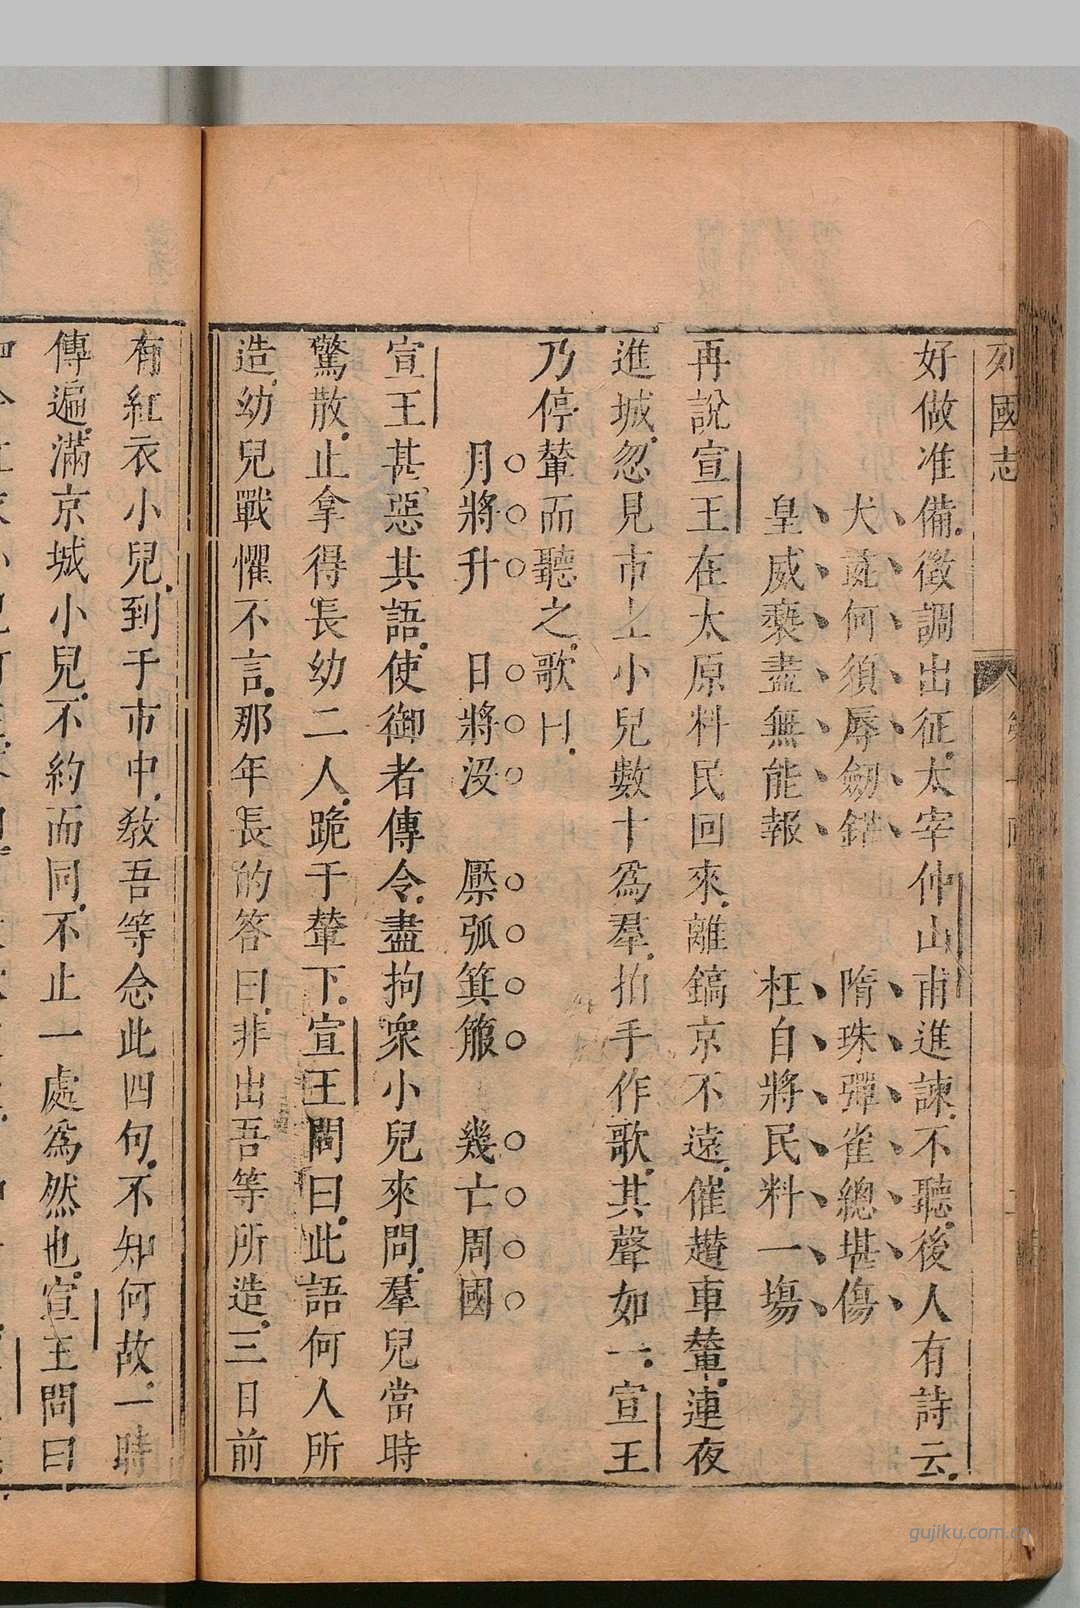 列國志
好做准備徵調出征太宰仲山甫進諫不聽後人有詩云
犬彘何須辱劒鋩 隋珠彈雀總堪傷
皇威䙝盡無能報 枉自將民料一場
再說宣王在太原料民回來離鎬京不遠催趲車輦連夜
進城忽見市上小兒數十爲羣拍手作歌其聲如一宣王
乃停輦而聽之歌曰
月將升 日將沒 檿弧箕箙 幾亡周國
宣王甚惡其語使御者傳令盡拘衆小兒來問羣兒當時
驚散止拿得長幼二人跪于輦下宣王問曰此語何人所
造幼兒戰懼不言那年長的答曰非出吾等所造三日前
有紅衣小兒到于市中教吾等念此四句不知何故一時
傳遍滿京城小兒不約而同不止一處爲然也宣王問曰
gujiku.com.cn